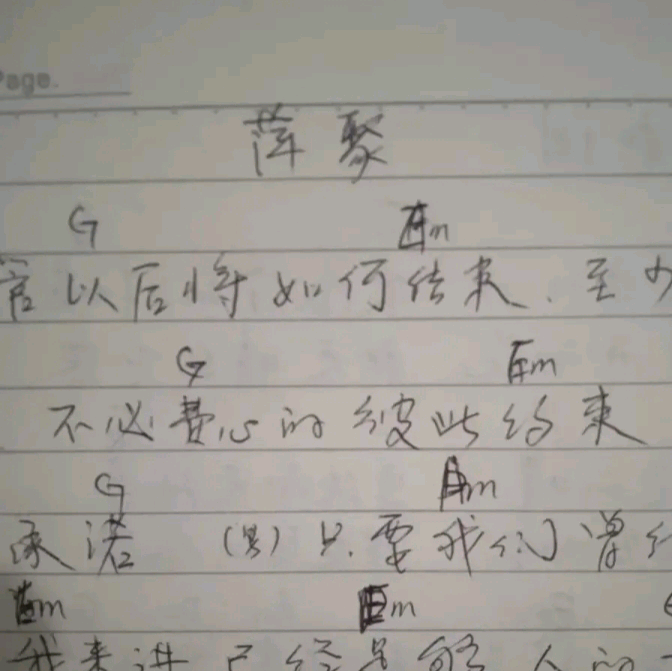 Page.
萍聚
G Em
管以后将如何结束、至少
G Em
不必费心的彼此约束
G Am
承诺 (男) 只要我们曾经
Em Em
我来讲已经足够 人的